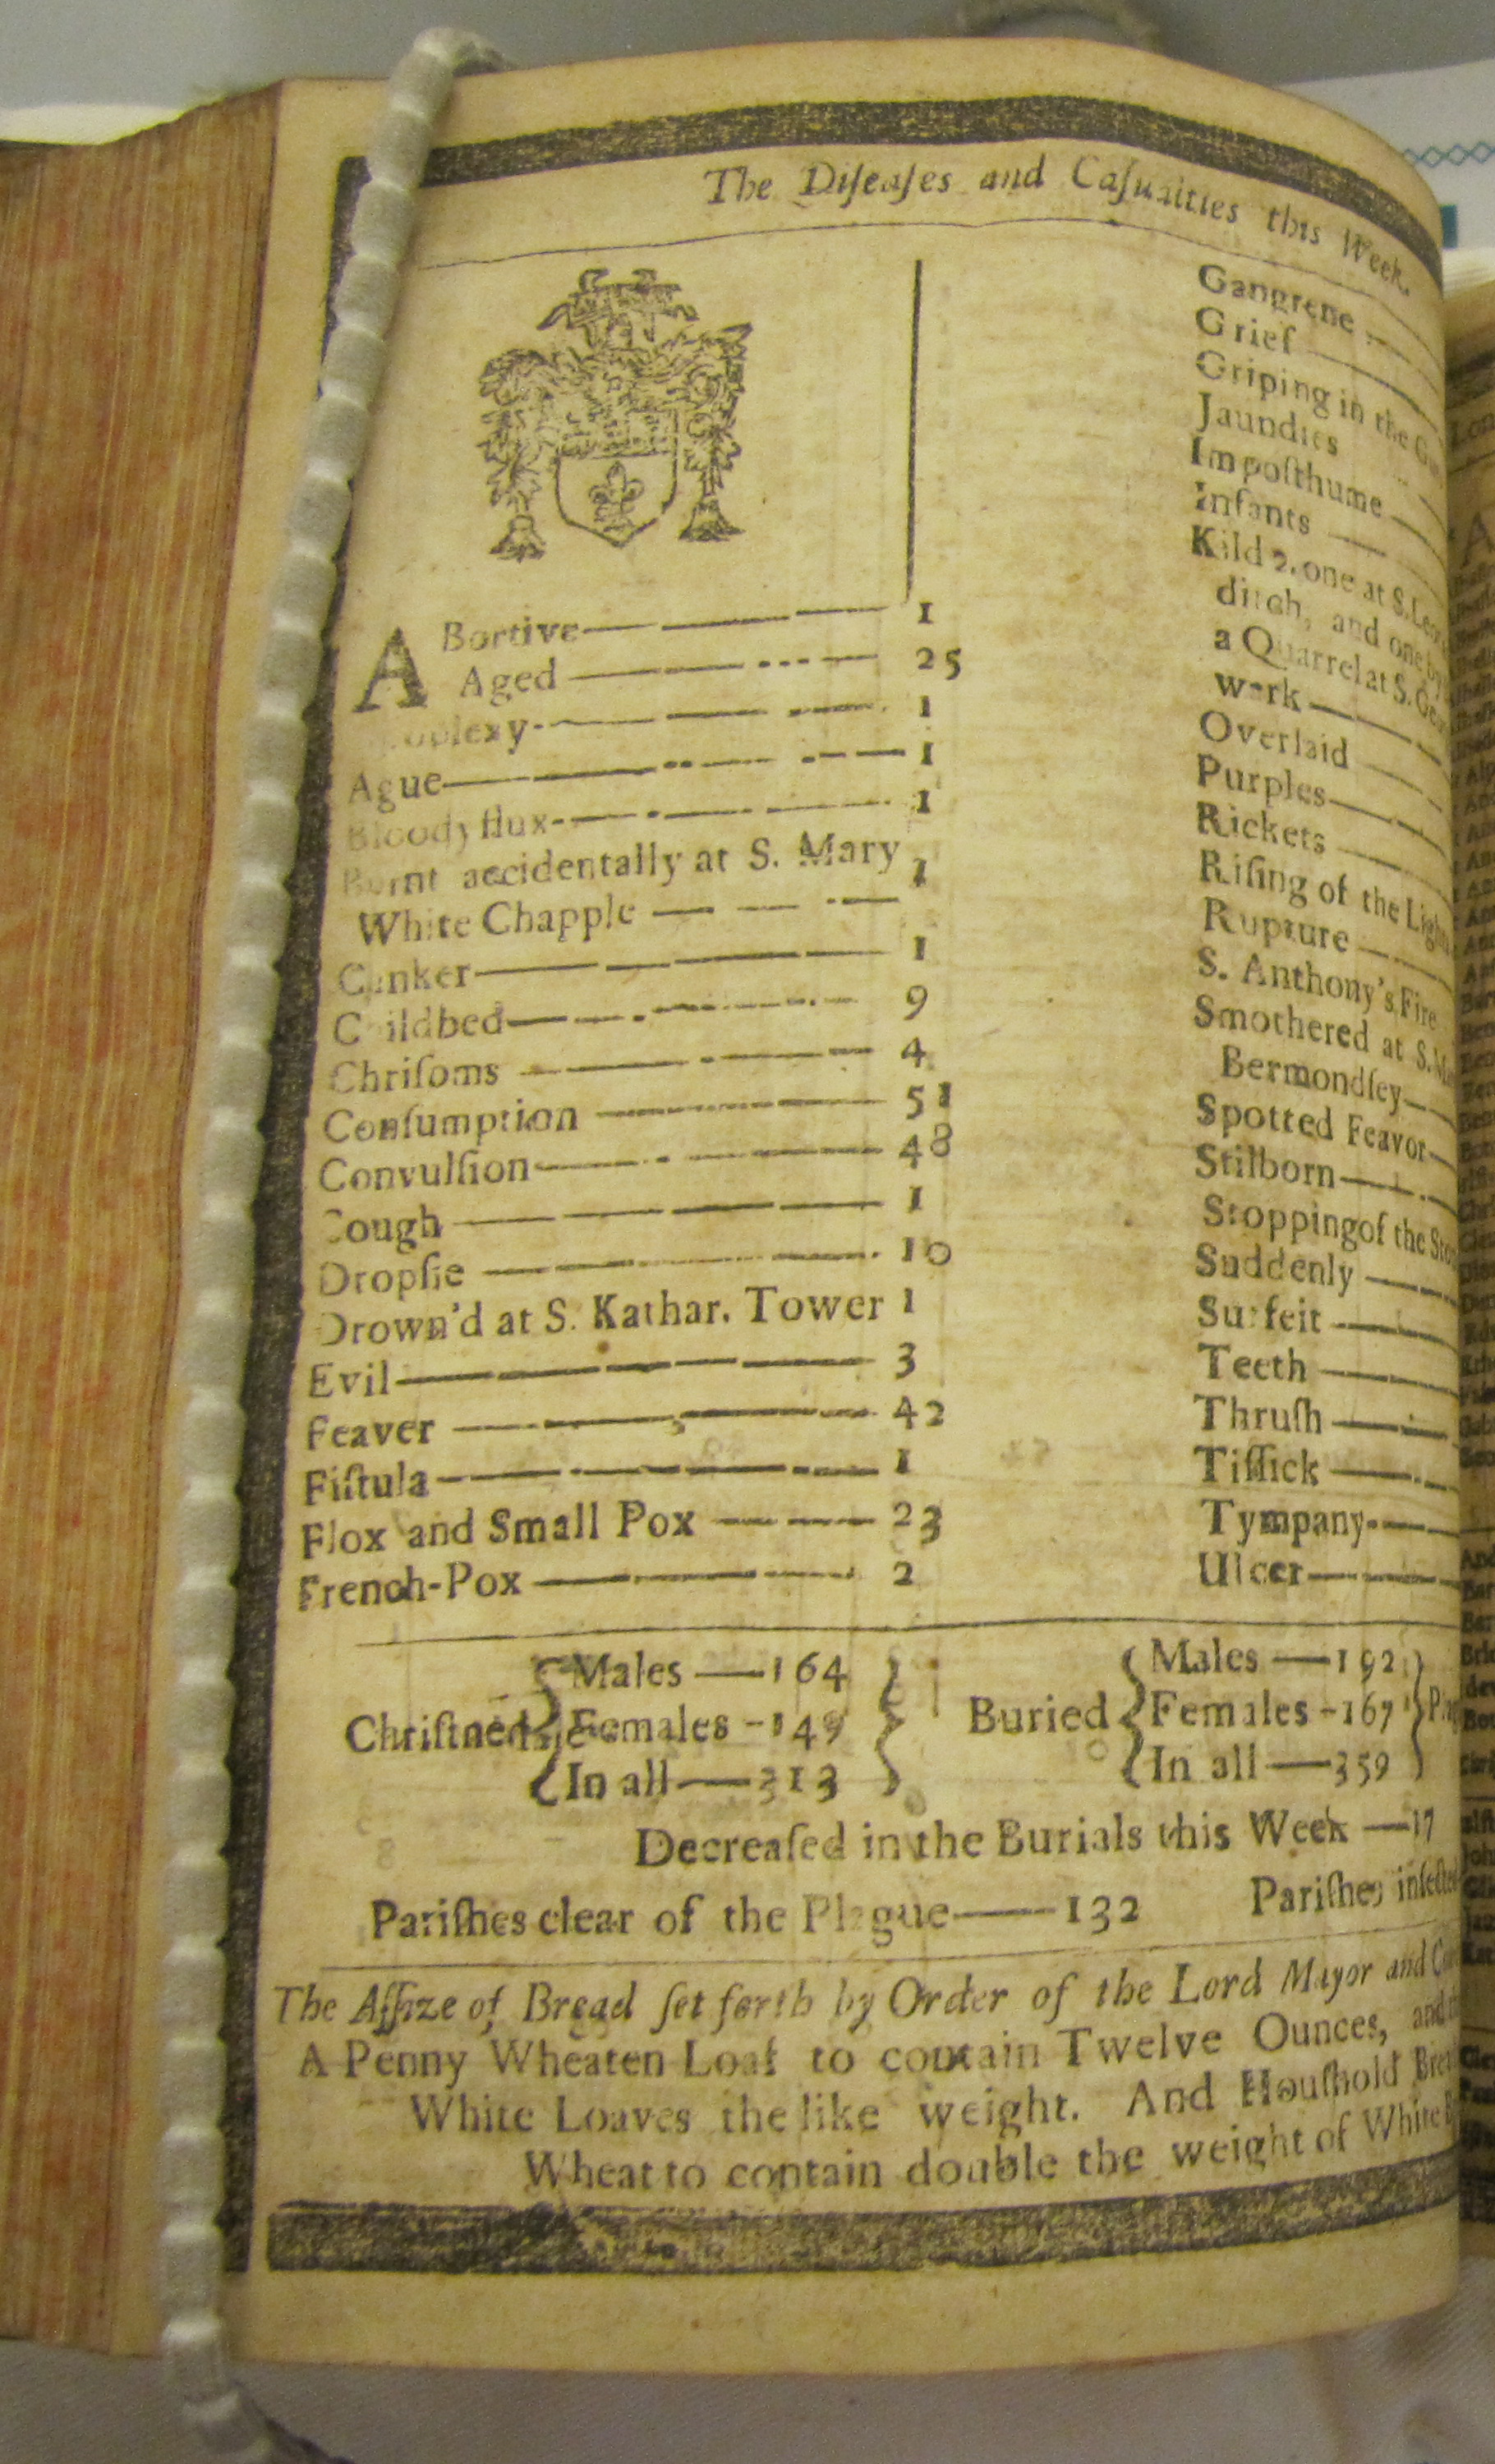 The Diſeaſes and Caſualties this Week.
ABortive 1
Aged 25
Ague 1
Bloody flux 1
Burnt accidentally at S. Mary
White Chapple 1
Canker 1
Childbed 9
Chriſoms 4
Conſumption 51
Convulſion 48
Cough 1
Dropſie 10
Drown'd at S. Kathar. Tower 1
Evil 3
Feaver 42
Fiſtula 1
Flox and Small Pox 23
French-Pox 2
Gangrene
Grief
Griping in the
Jaundies
Impoſthume
Infants
Kild 2. one at S.
ditch, and one by
a Quarrel at S.
work
Overlaid
Purples
Rickets
Riſing of the
Rupture
S. Anthony's Fire
Smothered at S.
Bermondſey
Spotted Feavor
Stilborn
Stopping of the
Suddenly
Surfeit
Teeth
Thruſh
Tiſſick
Tympany
Ulcer
Chriſtned { Males 164
Females 149
In all 313 }
Buried { Males 192
Females 167
In all 359 }
Decreaſed in the Burials this Week 17
Pariſhes clear of the Plague 132 Pariſhes
The Aſſize of Bread ſet forth by Order of the Lord Mayor and
A Penny Wheaten Loaf to contain Twelve Ounces, and
White Loaves the like weight. And Houſhold
Wheat to contain double the weight of White